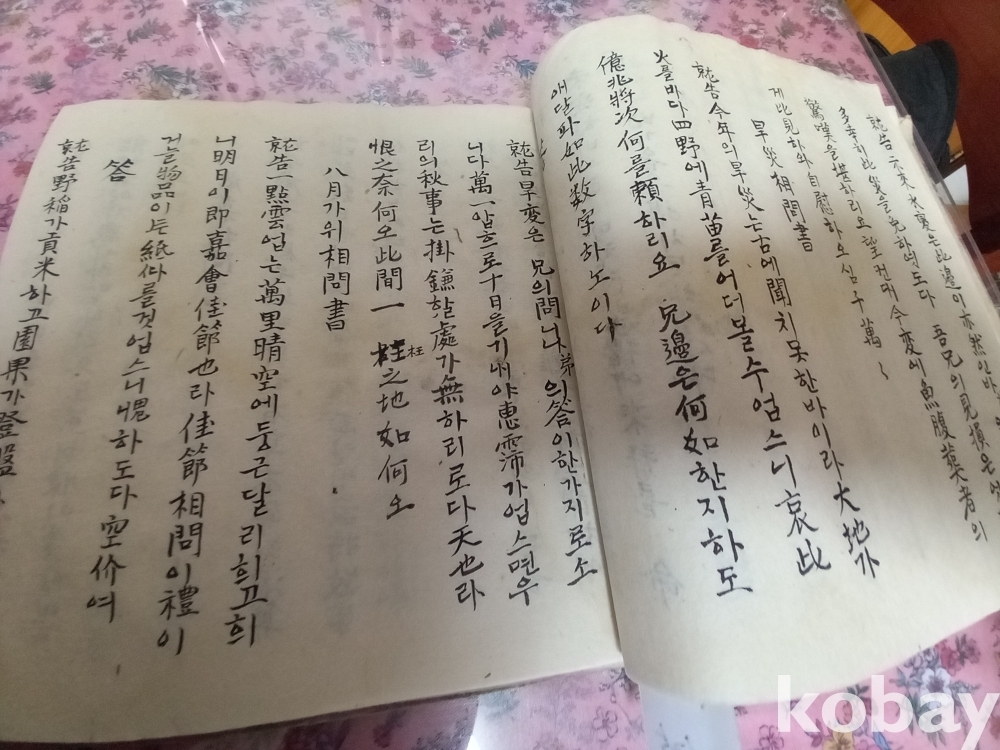 就告 水變는 此邊이 亦然인바
多幸히 此災을 免하엿도다 吾兄의 見損은
驚嘆을 하리오 望컨대 今變에 魚腹葬者의
게 比見하와 自慰하오심
旱災相問書
就告 今年의 旱災는 古에 聞치 못한바이라 大地가
火를바다 四野에 青苗를 어더볼수업스니 哀此
億兆將次何를 賴하리요 兄邊은 何如한지하도
애달파 如此數字하노이다
就告 旱變은 兄의問나 弟의答이한가지로소
니다 萬一 압흐로 十日을기내야 惠霈가업스면우
리의 秋事는 掛鎌할處가 無하리로다 天也라
恨之奈何오 此間一 枉之地如何오
八月가위相問書
就告 一點雲업는 萬里晴空에 둥근달리 희고희
니 明日이 即嘉會佳節也라 佳節相問이 禮이
건늘 物品이는 紙싸를것업스니 愧하도다 空价여
答
就告 野稻가 貢米하고 園果가 登盤
kobay